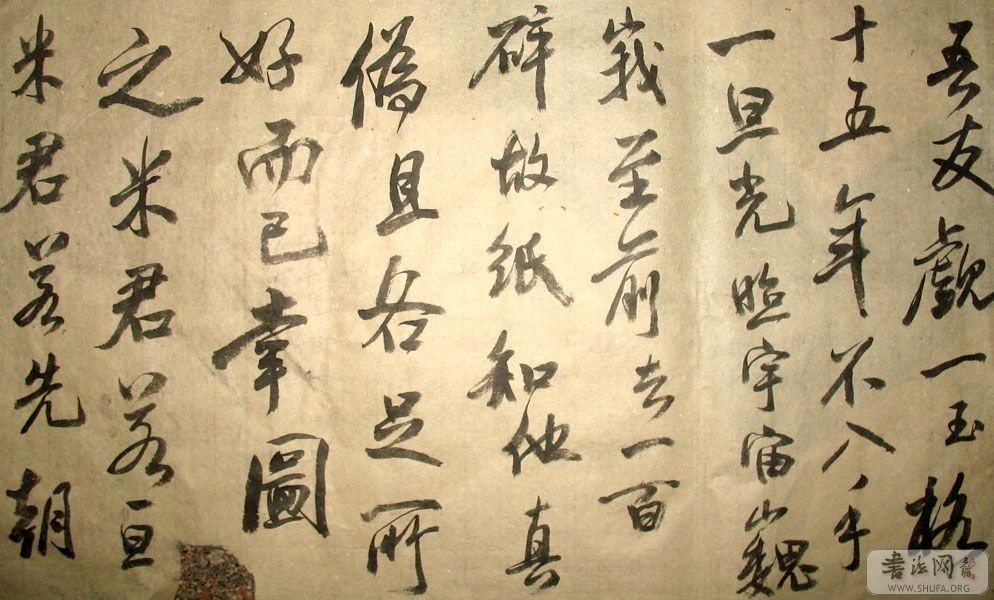 吾友覷一玉格
十五年不入手
一旦光照宇宙巍
峩至前去一百
碎故紙和他真
偽且各足所
好而已幸圖
之米君若亘
米君若先朝
書法网
WWW.SHUFA.ORG